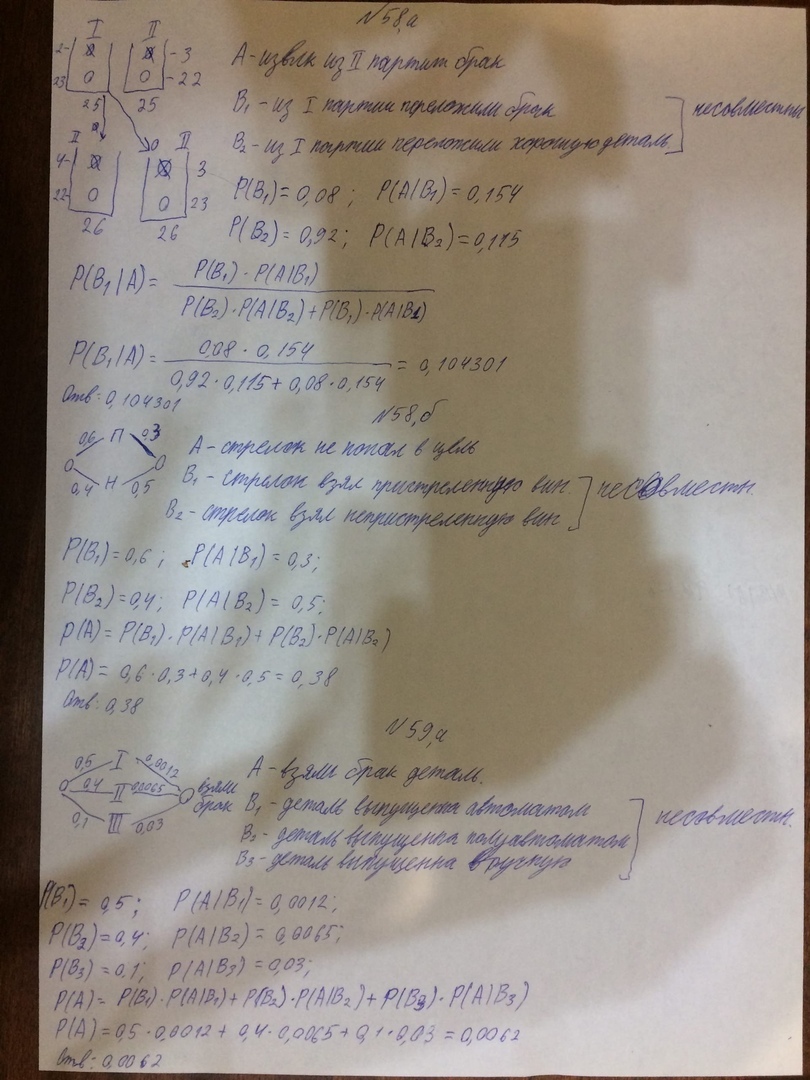 N58,а
I II
2- - 3
23 0 0 -22
25 25
А-извлк из II партит брак
B₁ - из I партии переложили брак
несовместны
B₂ - из I партии переложили хорошую деталь
II II
4- 3
22- 0 0 23
26 26
P(B₁)=0,08; P(A|B₁)=0,154
P(B₂)=0,92; P(A|B₂)=0,115
P(B₁|A)= P(B₁)·P(A|B₁)
P(B₂)·P(A|B₂)+P(B₁)·P(A|B1)
P(B₁|A)= 0,08·0,154 = 0,104301
0,92·0,115+0,08·0,154
Отв: 0,104301
N58,б
0,6 П 0,3
0 0
0,4 Н 0,5
А-стрелок не попал в цель
B₁ - стрелок взял пристреленную вин.
несовместн.
B₂ - стрелок взял непристреленную вин
P(B₁)=0,6; P(A|B₁)=0,3;
P(B₂)=0,4; P(A|B₂)=0,5;
P(A)=P(B₁)·P(A|B₁)+P(B₂)·P(A|B₂)
P(A)= 0,6·0,3+0,4·0,5=0,38
Отв: 0,38
N59,а
0,5 I 0,0012
0 0,4 II 0,0065 0 взяли брак
0,1 III 0,03
А-взяли брак деталь.
B₁-деталь выпущенка автоматом
B₂-деталь выпущенна полуавтоматом
несовместн.
B₃-деталь выпущенна вручную
P(B₁)=0,5; P(A|B₁)=0,0012;
P(B₂)=0,4; P(A|B₂)=0,0065;
P(B₃)=0,1; P(A|B₃)=0,03;
P(A)= P(B₁)·P(A|B₁)+P(B₂)·P(A|B₂)+P(B3)·P(A|B₃)
P(A)=0,5·0,0012+0,4·0,0065+0,1·0,03=0,0062
Отв: 0,0062